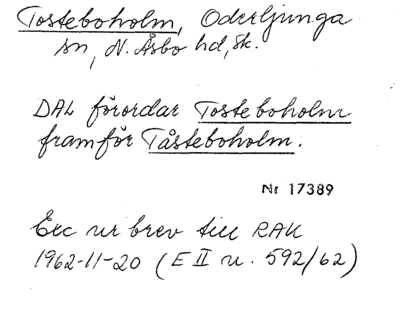 Tosteboholm, Oderljunga
sn, N. Åsbo hd, Sk.
DAL förordar Tosteboholm
framför Tåsteboholm.
Nr 17389
Exc ur brev till RAK
1962-11-20 (E II u. 592/62)